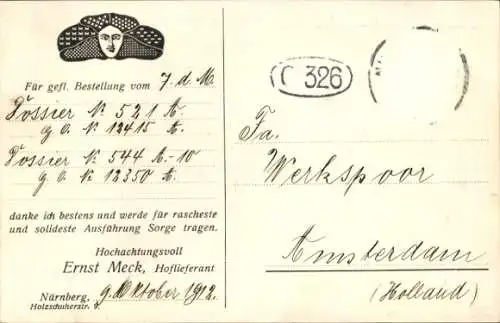 Für gefl. Bestellung vom 7. d. M.
Dossier № 521 A.
g. O. № 12415 A.
Dossier № 544 A.-10
g. O. № 12350 A.
danke ich bestens und werde für rascheste
und solideste Ausführung Sorge tragen.
Hochachtungsvoll
Ernst Meck, Hoflieferant
Nürnberg, 9. Oktober 1912.
Holzschuherstr. 6.
C 326
Fa.
Werkspoor
Amsterdam
(Holland)